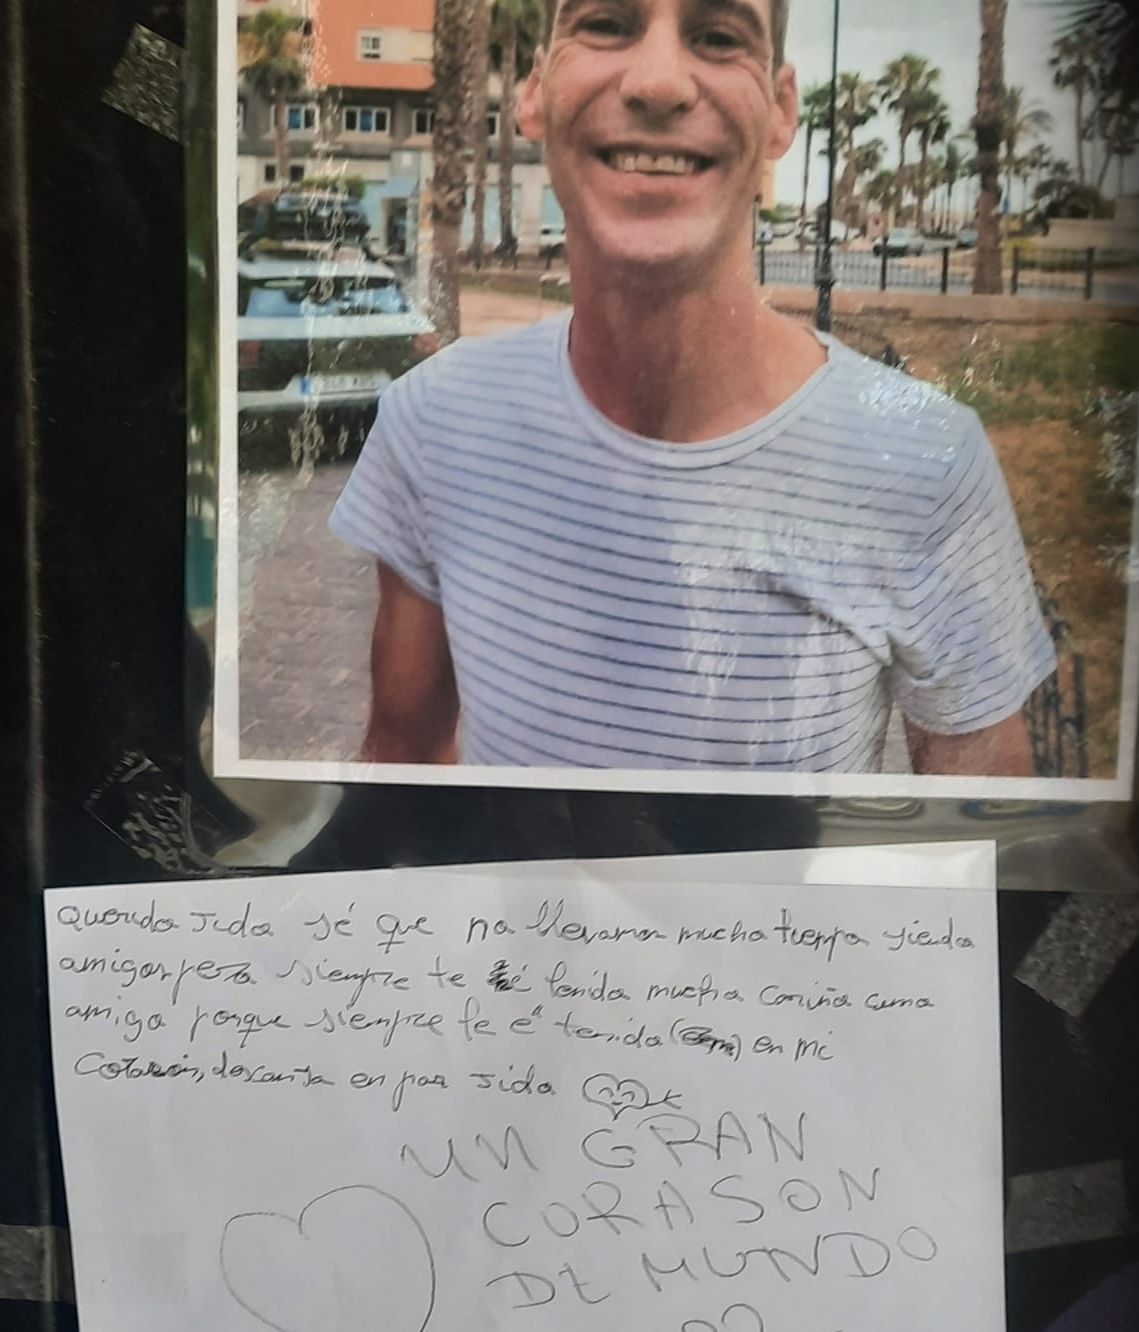 Querido Jida sé que no llevamos mucho tiempo siendo
amigos pero siempre te é tenido mucho cariño como
amigo porque siempre te e tenido en mi
Corazón, descansa en paz Jida
UN GRAN
CORASON
DE MUNDO